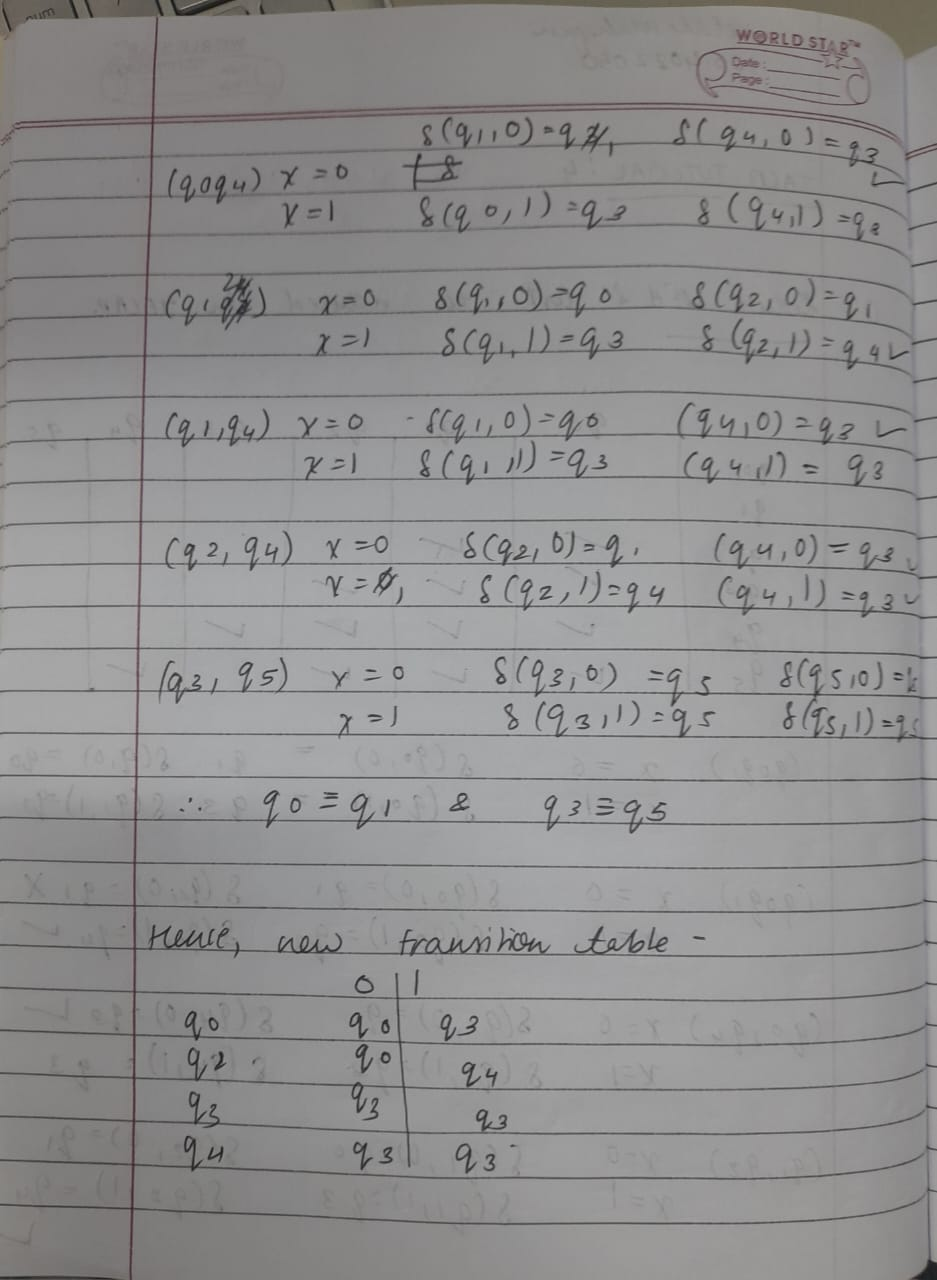 num
WORLD STAR™
Date :
Page :
δ(q1,0)=q1, δ(q4,0)=q3
(q0q4) x=0
x=1 δ(q0,1)=q3 δ(q4,1)=q3
(q1q2) x=0 δ(q1,0)=q0 δ(q2,0)=q1
x=1 δ(q1,1)=q3 δ(q2,1)=q4 ✓
(q1,q4) x=0 δ(q1,0)=q0 (q4,0)=q3 ✓
x=1 δ(q1,1)=q3 (q4,1)= q3
(q2,q4) x=0 δ(q2,0)=q1 (q4,0)=q3 ✓
x=1 δ(q2,1)=q4 (q4,1)=q3 ✓
(q3, q5) x=0 δ(q3,0) =q5 δ(q5,0)=
x=1 δ(q3,1)=q5 δ(q5,1)=q5
∴ q0≡q1 & q3≡q5
Hence, new transition table -
0 | 1
q0 q0 | q3
q2 q0 | q4
q3 q3 | q3
q4 q3 | q3